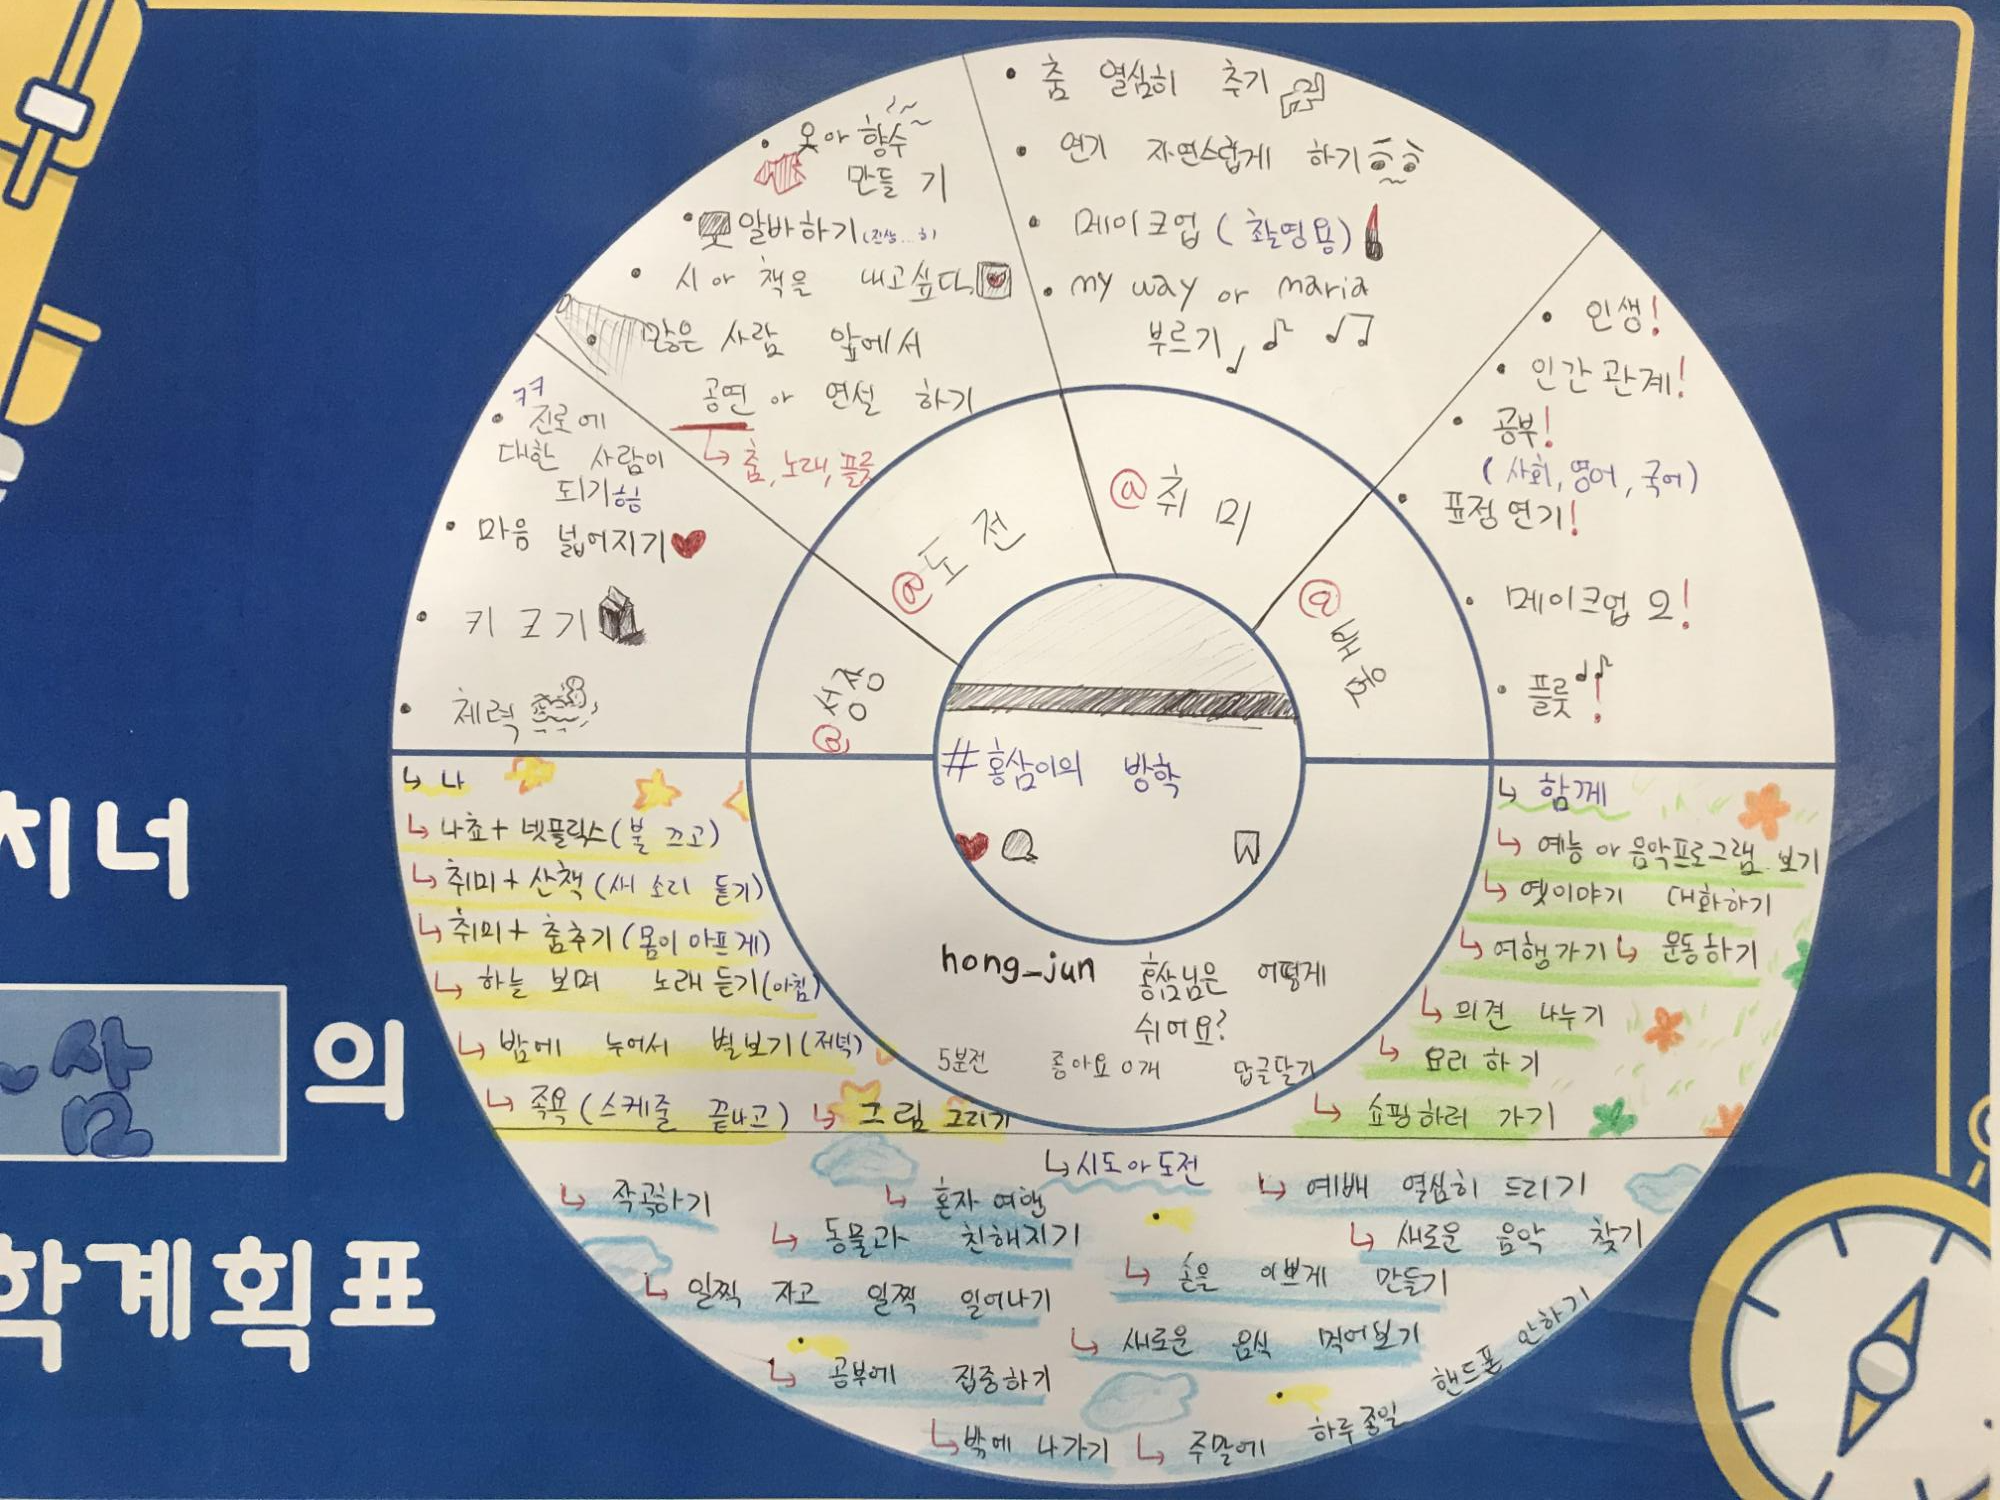 치너
삼
의
학계획표
춤 열심히 추기
연기 자연스럽게 하기
메이크업 (촬영용)
my way or maria
부르기
옷 or 향수
만들기
알바하기
시 or 책을 내고싶다
많은 사람 앞에서
공연 or 연설 하기
↳ 춤, 노래, 플룻
진로에
대한 사람이
되기
마음 넓어지기
키 크기
체력
인생!
인간관계!
공부!
(사회, 영어, 국어)
표정연기!
메이크업 으!
플룻!
@성장
@도전
@취미
@배움
#홍삼이의 방학
hong_jun 홍삼님은 어떻게
쉬어요?
5분전 좋아요 0개 답글달기
↳ 나
↳ 나쵸+넷플릭스(불 끄고)
↳ 취미+산책(새 소리 듣기)
↳ 취미+춤추기(몸이 아프게)
↳ 하늘 보며 노래 듣기(아침)
↳ 밤에 누어서 별보기(저녁)
↳ 족욕(스케줄 끝나고) ↳ 그림 그리기
↳ 함께
↳ 예능 or 음악프로그램 보기
↳ 옛이야기 대화하기
↳ 여행가기 ↳ 운동하기
↳ 의견 나누기
↳ 요리하기
↳ 쇼핑하러 가기
↳ 시도 or 도전
↳ 작곡하기
↳ 혼자 여행
↳ 예배 열심히 드리기
↳ 동물과 친해지기
↳ 새로운 음악 찾기
↳ 일찍 자고 일찍 일어나기
↳ 손을 이쁘게 만들기
↳ 새로운 음식 먹어보기
↳ 공부에 집중하기
↳ 밖에 나가기
↳ 주말에 하루종일 핸드폰 안하기